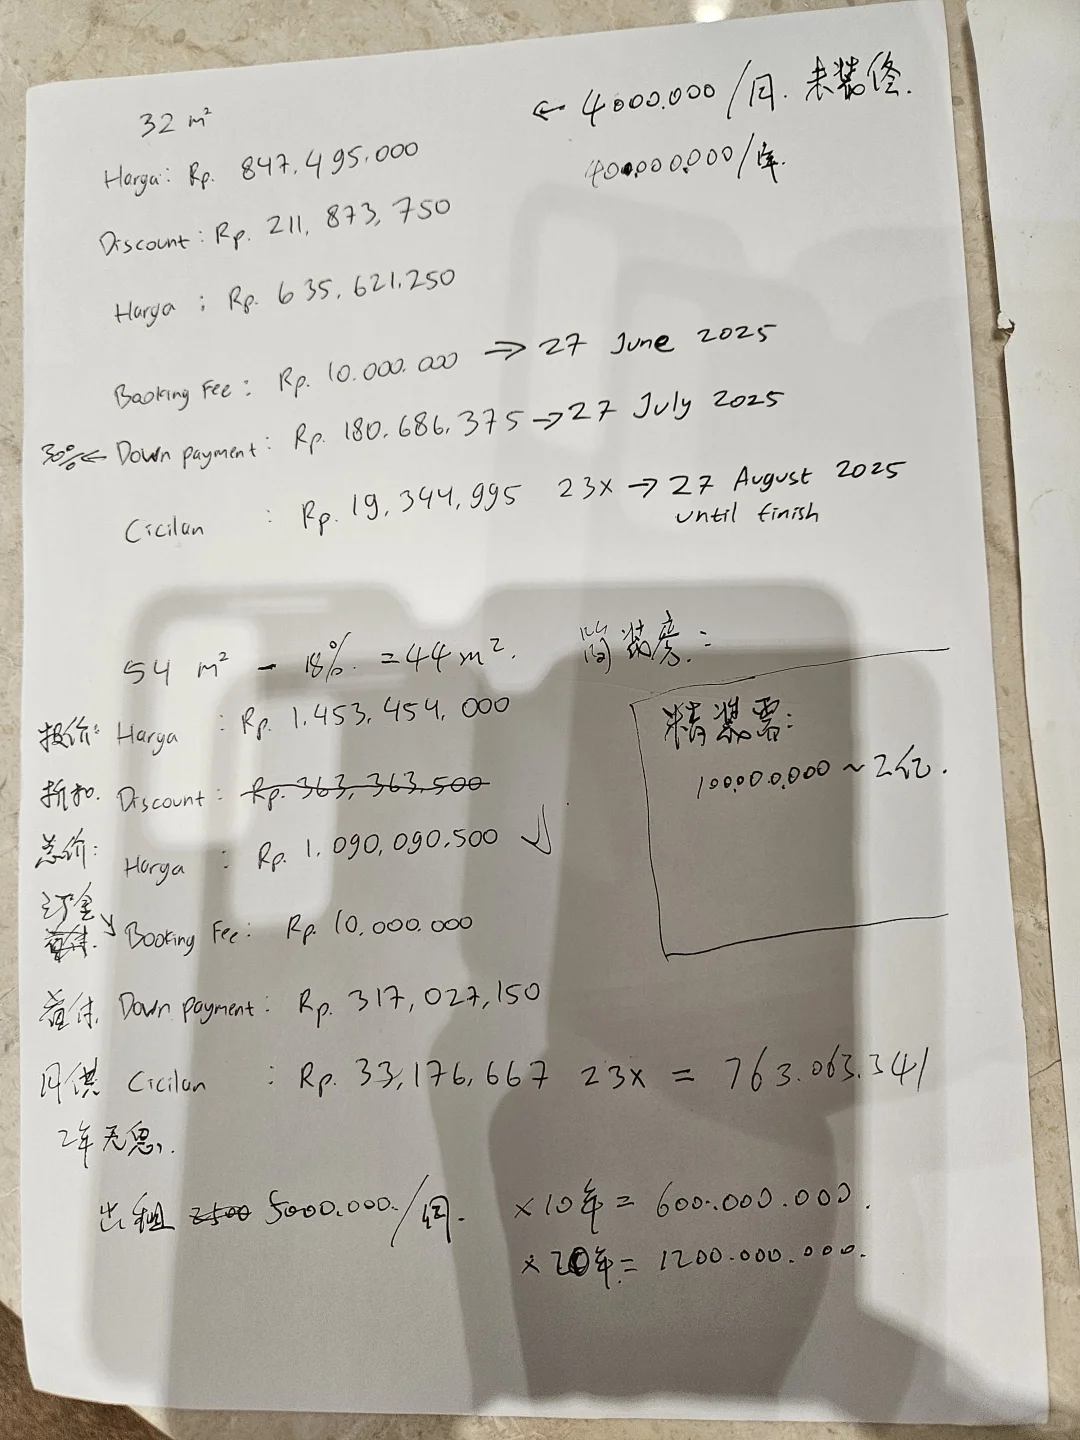 32 m²
← 4000.000/月. 未装修.
Harga: Rp. 847.495.000
400.000.000/年.
Discount: Rp. 211, 873, 750
Harga : Rp. 635, 621.250
Booking Fee: Rp. 10.000.000 → 27 June 2025
30% ← Down payment: Rp. 180.686,375 → 27 July 2025
Cicilan : Rp. 19,344,995 23x → 27 August 2025
until finish
54 m² - 18% = 44 m². 简装房:
报价: Harga : Rp. 1.453.454,000
精装需:
100.00.000 ~ 2亿.
折扣. Discount: Rp. 363,363.500
总价: Harga : Rp. 1.090,090.500
订金
首付. Booking Fee: Rp. 10.000.000
首付, Down payment: Rp. 317,027,150
月供 Cicilan : Rp. 33,176,667 23x = 763.063.341
2年无息,.
出租 2500 5000.000./月. ×10年 = 600.000.000.
×20年 = 1200.000.000.